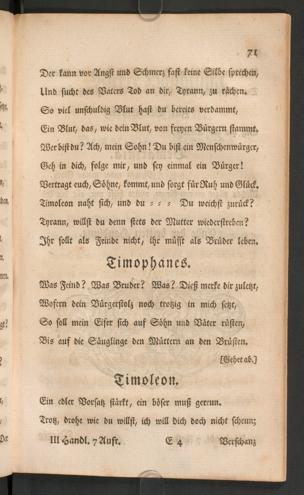 71
Der kann vor Angst und Schmerz fast keine Silbe sprechen,
Und sucht des Vaters Tod an dir, Tyrann, zu rächen.
So viel unschuldig Blut hast du bereits verdammt,
Ein Blut, das, wie dein Blut, von freyen Bürgern stammt.
Wer bist du? Ach, mein Sohn! Du bist ein Menschenwürger,
Geh in dich, folge mir, und sey einmal ein Bürger!
Vertragt euch, Söhne, kommt, und sorgt für Ruh und Glück.
Timoleon naht sich, und du - - - Du weichst zurück?
Tyrann, willst du denn stets der Mutter wiederstreben?
Ihr sollt als Feinde nicht, ihr müßt als Brüder leben.
Timophanes.
Was Feind? Was Bruder? Was? Dieß merke dir zuletzt,
Wofern dein Bürgerstolz noch trotzig in mich setzt,
So soll mein Eifer sich auf Söhn und Väter rüsten,
Bis auf die Säuglinge den Müttern an den Brüsten.
[Gehet ab.]
Timoleon.
Ein edler Vorsatz stärkt, ein böser muß gereun.
Trotz, drohe wie du willst, ich will dich doch nicht scheun;
III Handl. 7 Auft. E 4 Verschanz